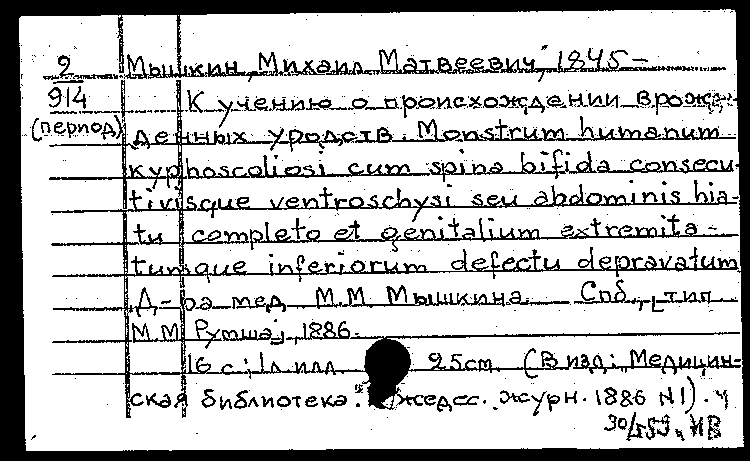 9
914
(период)
Мышкин, Михаил Матвеевич, 1845 –
К учению о происхождении врож-
денных уродств. Monstrum humanum
kyphoscoliosi cum spina bifida consecu-
tivisque ventroschysi seu abdominis hia-
tu completo et genitalium extremita-
tumque inferiorum defectu depravatum
Д-ра мед. М.М. Мышкина. Спб., тип.
М.М. Гутша], 1886.
16 с.; 1 л. илл. 25см. (В изд.: Медицин-
ская библиотека. журн. 1886 N1). ч